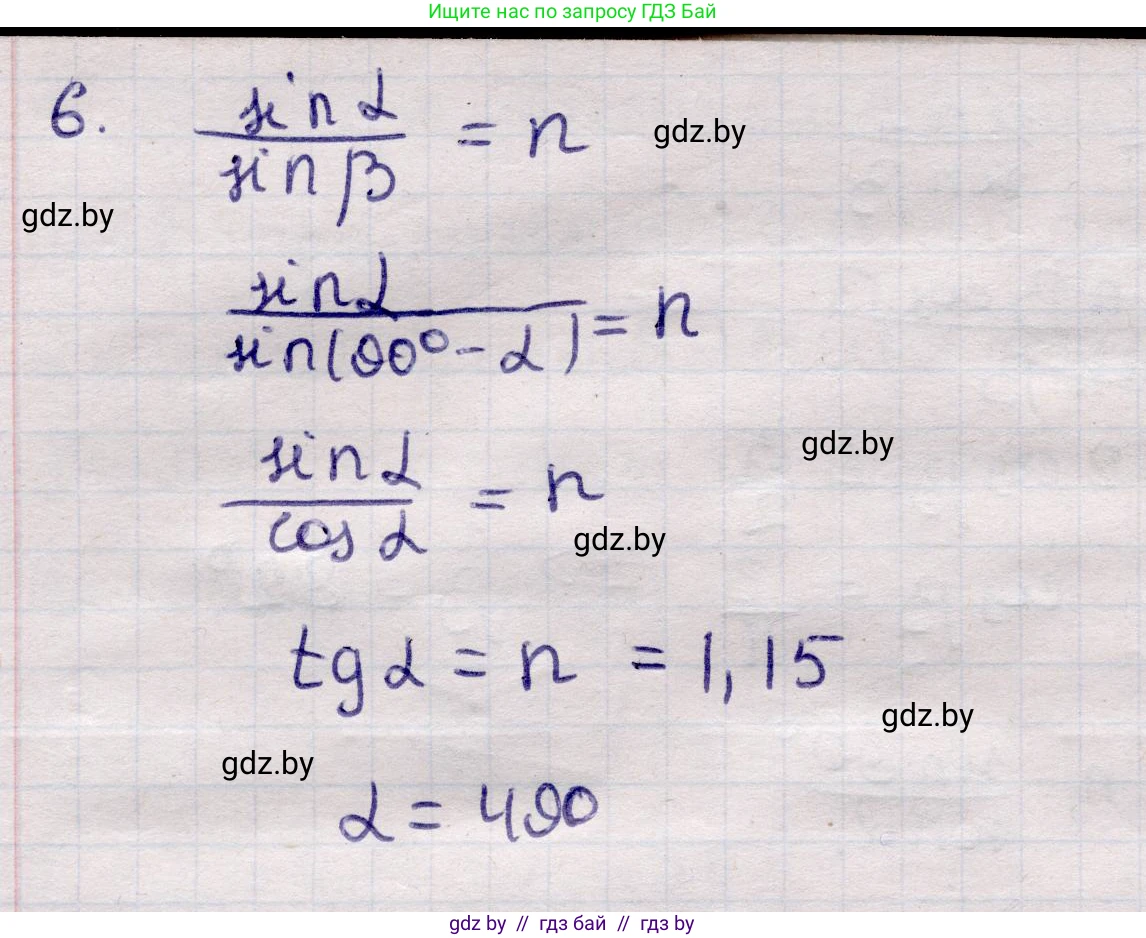 Ищите нас по запросу ГДЗ Бай
6. sin α / sin β = n
gdz.by
gdz.by
sin α / sin(90° - α) = n
sin α / cos α = n
gdz.by
gdz.by
tg α = n = 1,15
gdz.by
gdz.by
α = 490
gdz by // гдз бай // гдз by